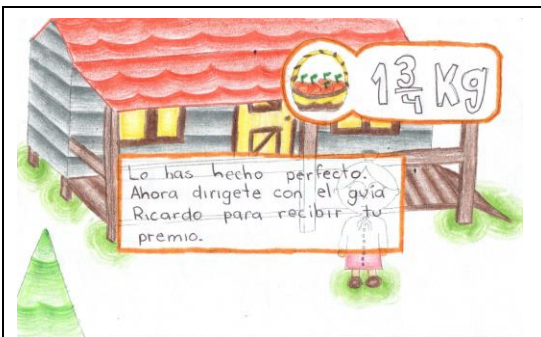 1 3/4 Kg
Lo has hecho perfecto.
Ahora dirigete con el guia
Ricardo para recibir tu
premio.